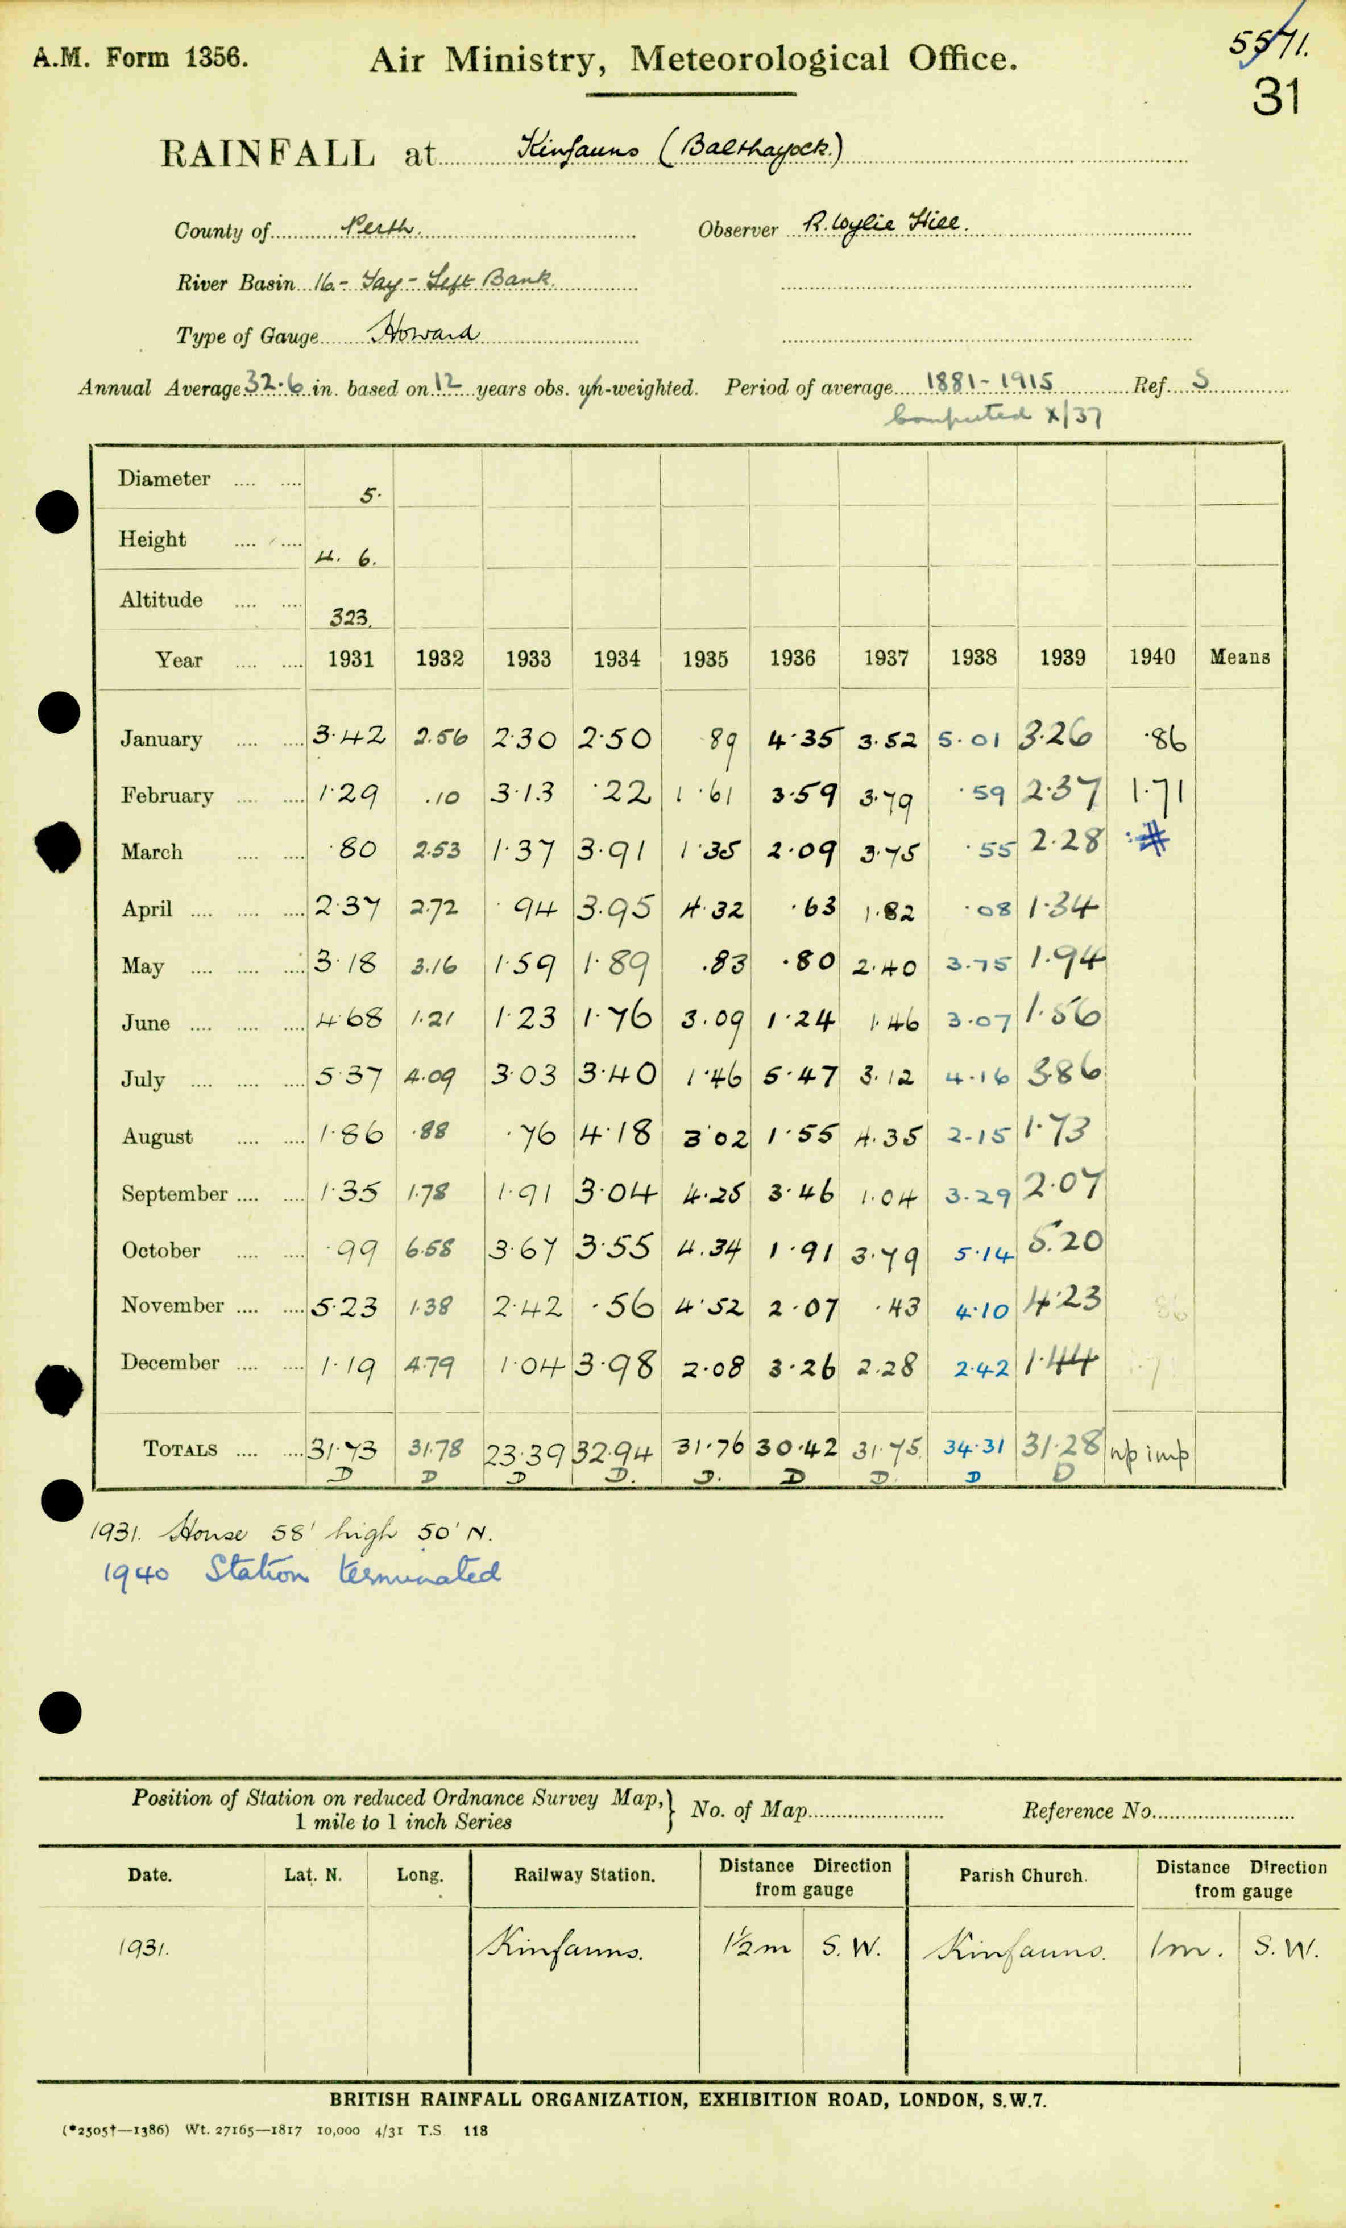 A.M. Form 1356.
Air Ministry, Meteorological Office.
5571.
31
RAINFALL at Kinfauns (Balthayock.)
County of Perth. Observer R. Wylie Hill.
River Basin 16 - Tay - Left Bank.
Type of Gauge Howard
Annual Average 32.6 in. based on 12 years obs. un-weighted. Period of average 1881-1915 Ref. S
Computed X/37
Diameter .... .... 5.
Height .... .... 4. 6.
Altitude .... .... 323.
Year .... .... 1931 1932 1933 1934 1935 1936 1937 1938 1939 1940 Means
January .... .... 3.42 2.56 2.30 2.50 .89 4.35 3.52 5.01 3.26 .86
February .... .... 1.29 .10 3.13 .22 1.61 3.59 3.79 .59 2.37 1.71
March .... .... .80 2.53 1.37 3.91 1.35 2.09 3.75 .55 2.28
April .... .... .... 2.37 2.72 .94 3.95 4.32 .63 1.82 .08 1.34
May .... .... .... 3.18 3.16 1.59 1.89 .83 .80 2.40 3.75 1.94
June .... .... .... 4.68 1.21 1.23 1.76 3.09 1.24 1.46 3.07 1.56
July .... .... .... 5.37 4.09 3.03 3.40 1.46 5.47 3.12 4.16 3.86
August .... .... 1.86 .88 .76 4.18 3.02 1.55 4.35 2.15 1.73
September .... .... 1.35 1.78 1.91 3.04 4.25 3.46 1.04 3.29 2.07
October .... .... .99 6.58 3.67 3.55 4.34 1.91 3.79 5.14 5.20
November .... .... 5.23 1.38 2.42 .56 4.52 2.07 .43 4.10 4.23 86
December .... .... 1.19 4.79 1.04 3.98 2.08 3.26 2.28 2.42 1.44
TOTALS .... .... 31.73 31.78 23.39 32.94 31.76 30.42 31.75 34.31 31.28 np imp
D D D D. D. D D. D D
1931. House 58' high 50' N.
1940 Station terminated
Position of Station on reduced Ordnance Survey Map,} No. of Map Reference No.
1 mile to 1 inch Series
Date. Lat. N. Long. Railway Station. Distance Direction from gauge Parish Church. Distance Direction from gauge
1931. Kinfauns. 1½m S.W. Kinfauns. 1m. S.W.
BRITISH RAINFALL ORGANIZATION, EXHIBITION ROAD, LONDON, S.W.7.
(*2505†—1386) Wt. 27165—1817 10,000 4/31 T.S 118